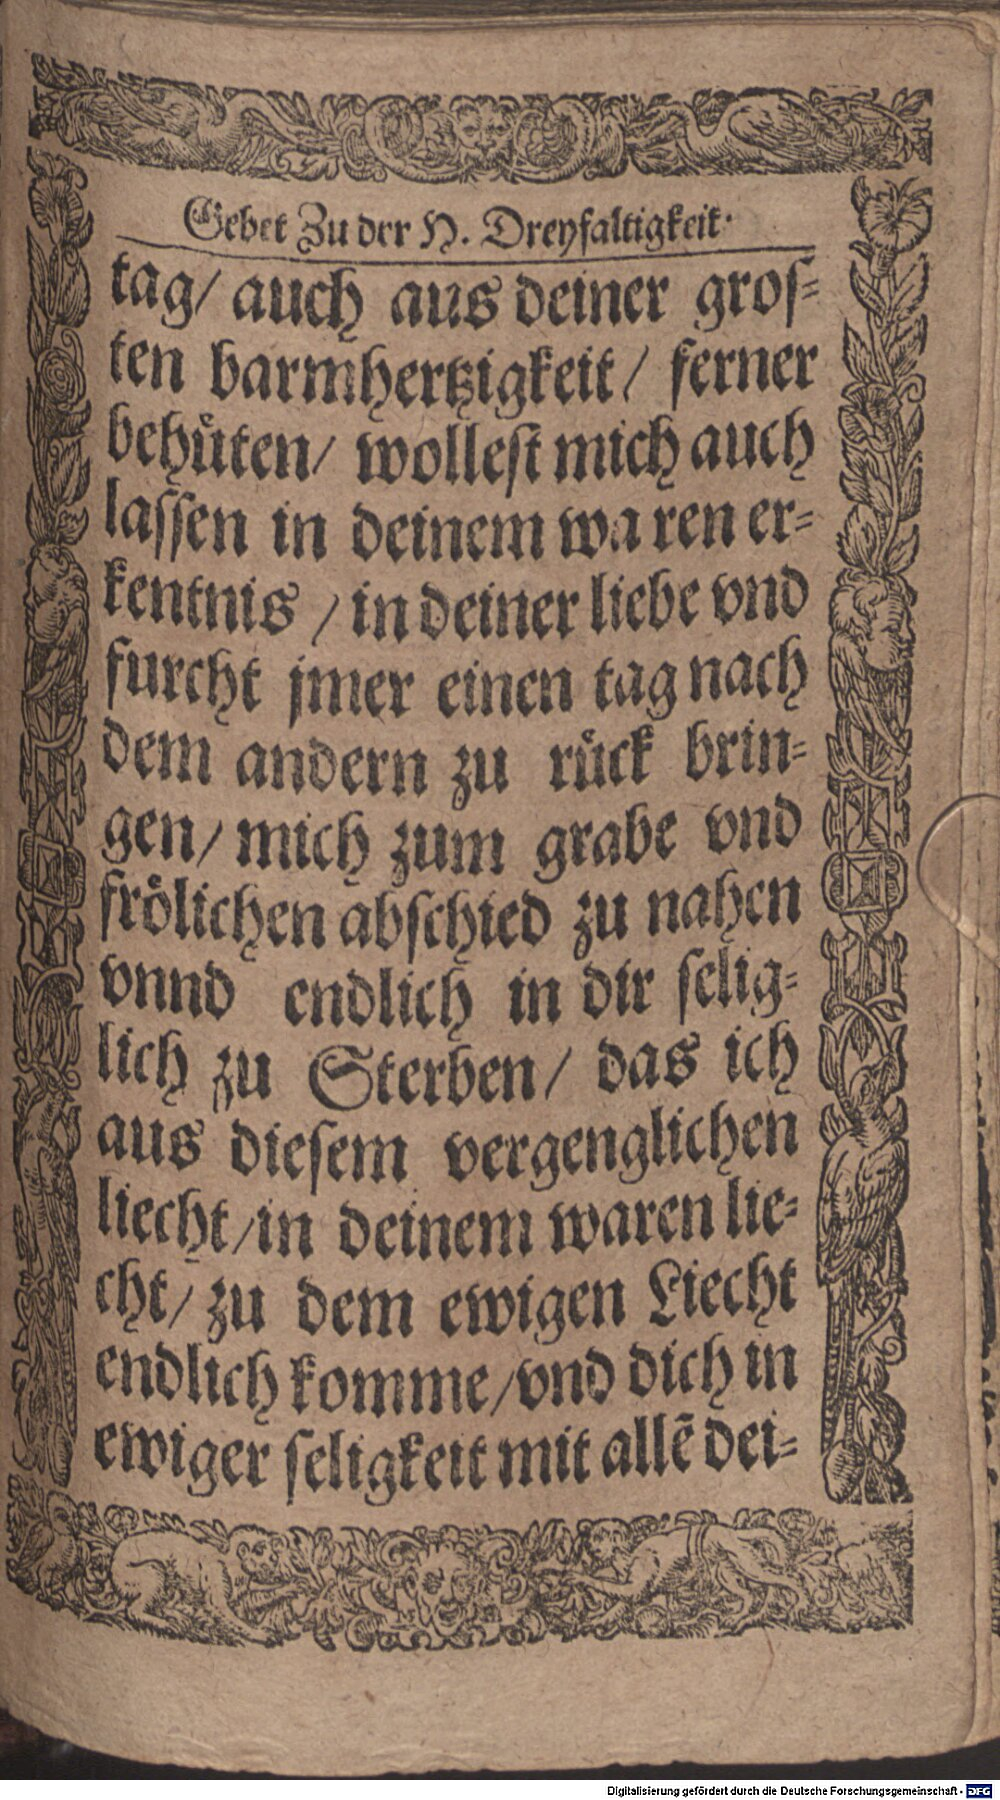 Gebet Zu der H. Dreyfaltigkeit.
tag/ auch aus deiner groſ⸗
ten barmhertzigkeit/ ferner
behuͤten/ wolleſt mich auch
laſſen in deinem waren er⸗
kentnis / in deiner liebe vnd
furcht jmer einen tag nach
dem andern zu ruͤck brin⸗
gen/ mich zum grabe vnd
froͤlichen abſchied zu nahen
vnnd endlich in dir ſelig⸗
lich zu Sterben/ das ich
aus dieſem vergenglichen
liecht/in deinem waren lie⸗
cht/ zu dem ewigen Liecht
endlich komme/vnd dich in
ewiger ſeligkeit mit allẽ dei⸗
Digitalisierung gefördert durch die Deutsche Forschungsgemeinschaft - DFG